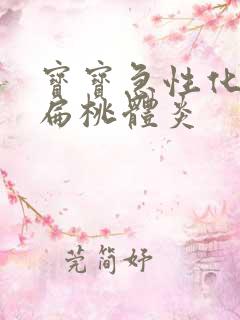 寶寶急性化
扁桃體炎
莞简妤